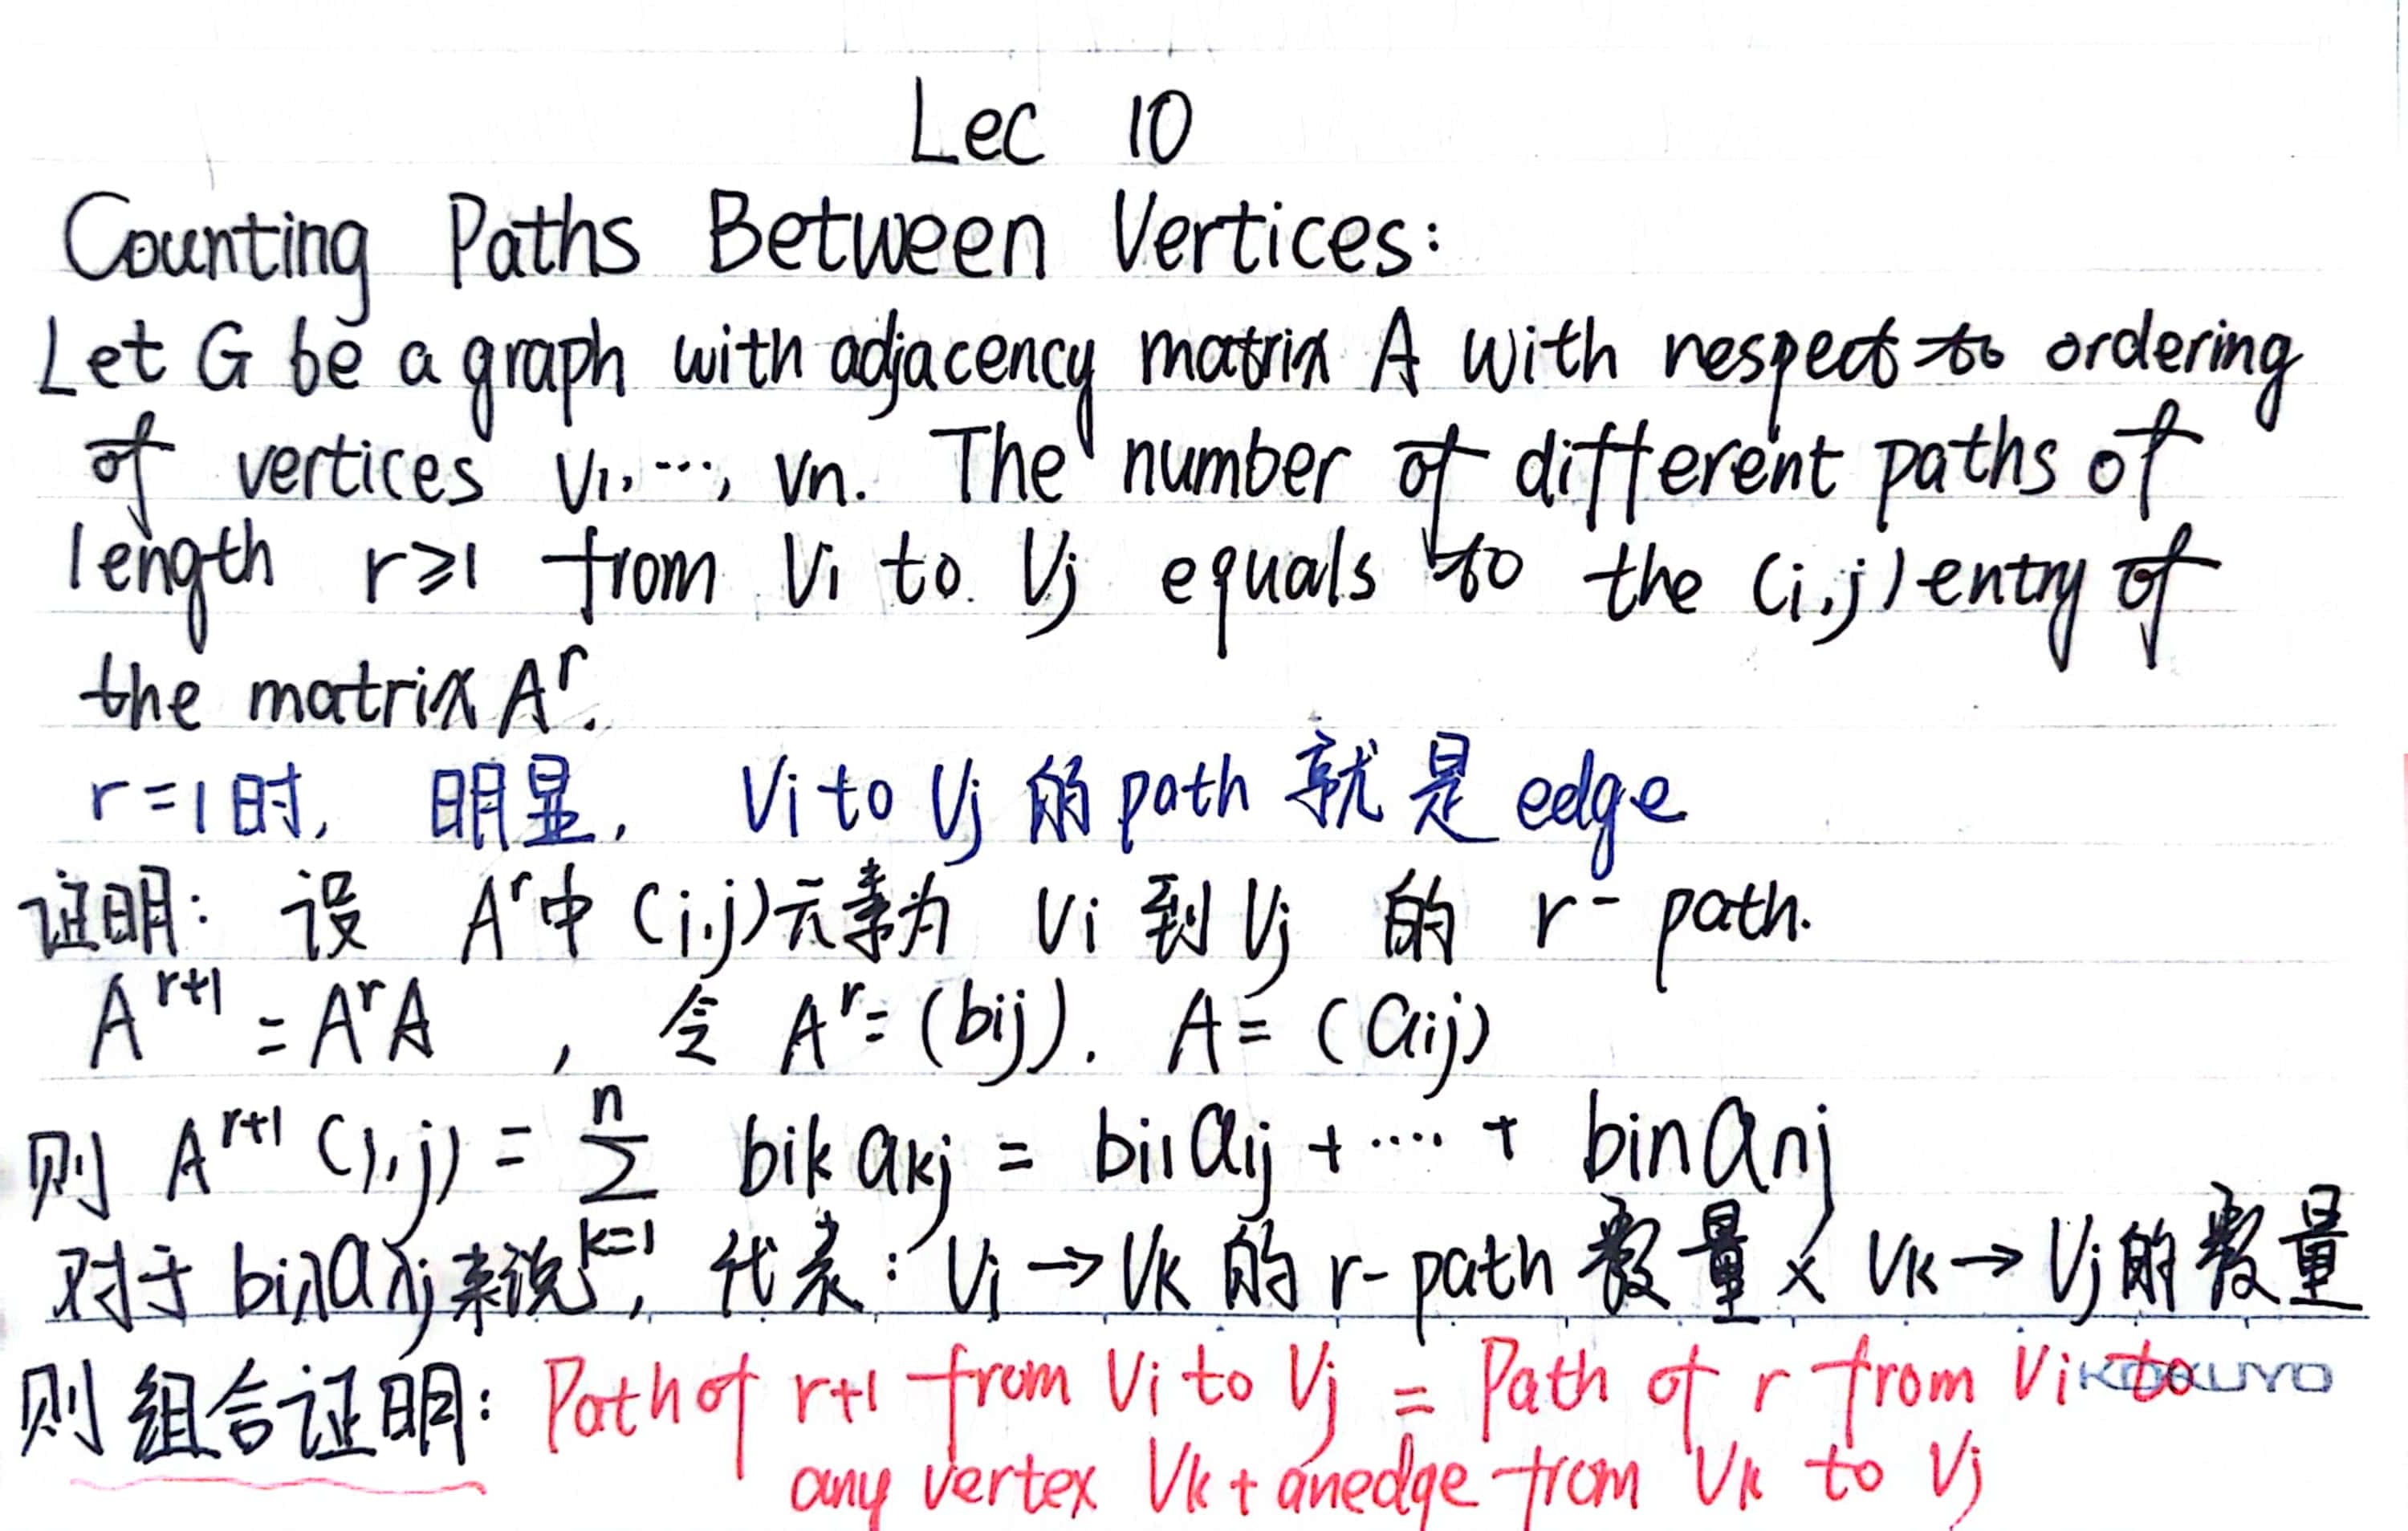 Lec 10
Counting Paths Between Vertices:
Let G be a graph with adjacency matrix A with respect to ordering
of vertices v1, ..., vn. The number of different paths of
length r≥1 from Vi to Vj equals to the (i,j) entry of
the matrix A^r.
r=1时, 明显, Vi to Vj 的path 就是 edge
证明: 设 A^r中 (i,j)元素为 Vi 到 Vj 的 r-path.
A^{r+1} = A^r A , 令 A^r = (bij). A = (aij)
则 A^{r+1} (i,j) = ∑_{k=1}^{n} bik akj = bi1 a1j + .... + bin anj
对于 biλaλj来说, 代表: Vi → Vk 的 r-path 数量 × Vk → Vj的数量
则组合证明: Path of r+1 from Vi to Vj = Path of r from Vi to
any vertex Vk + an edge from Vk to Vj
KOKUYO